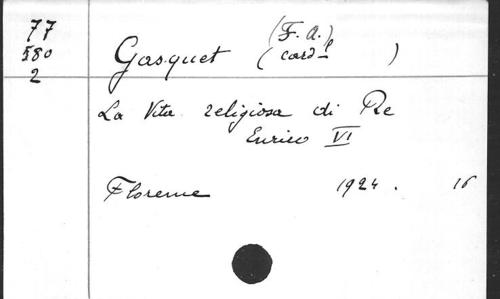 77
580
2
Gasquet (F. A.) (card¹ )
La Vita religiosa di Re
Enrico VI
Florence 1924. 16